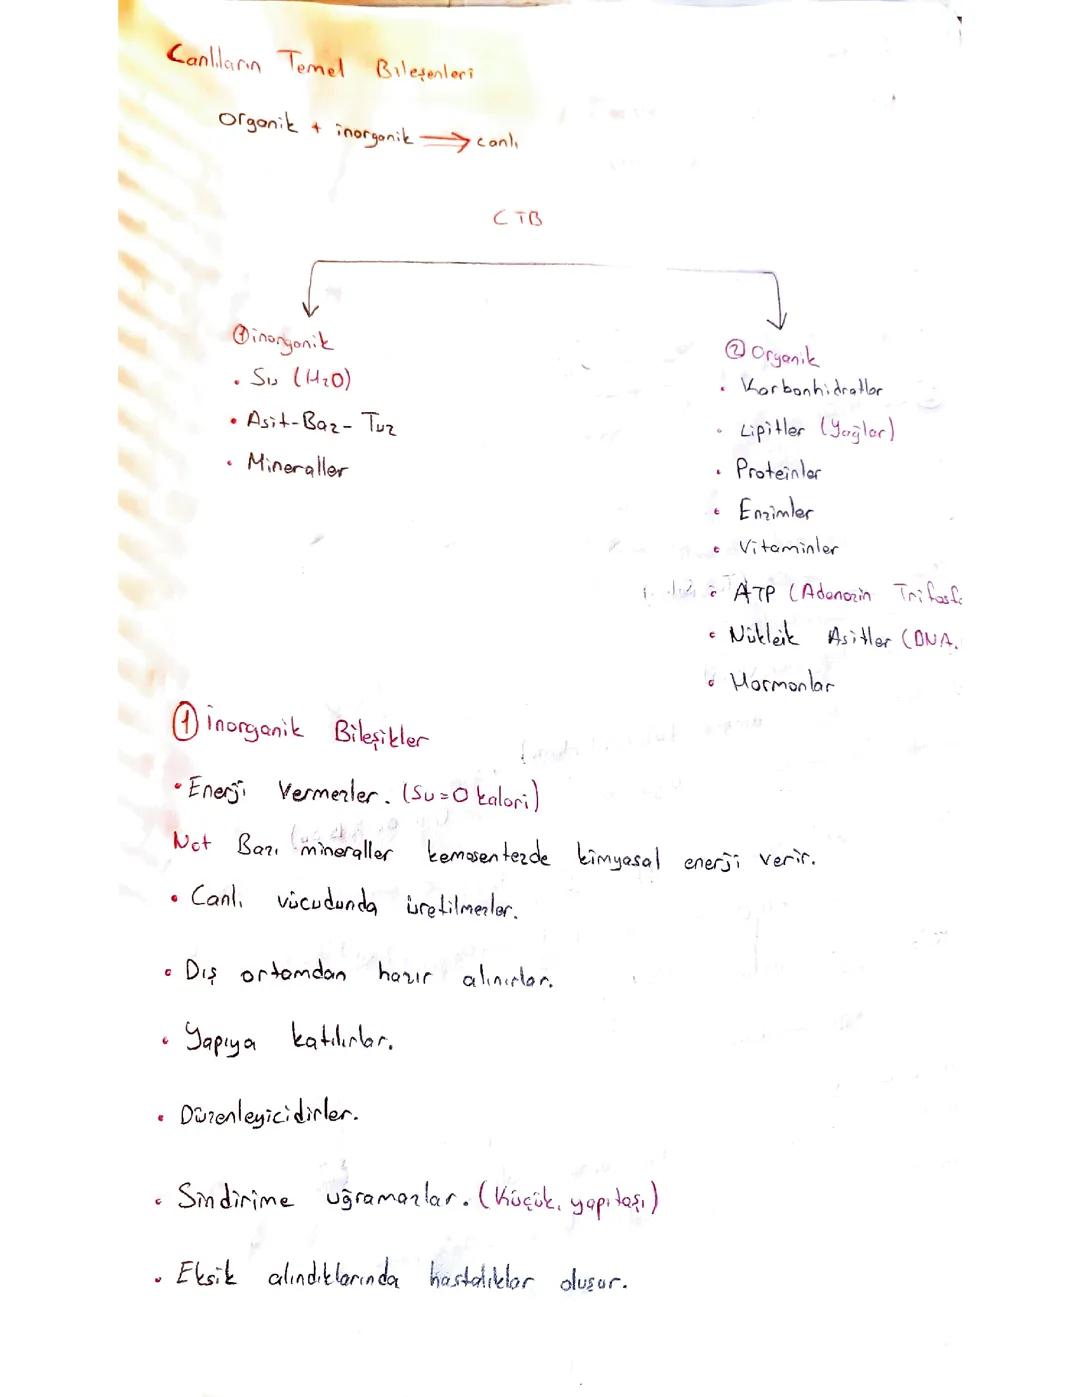 Canlıların Temel Bileşenleri
Organik + inorganik ⟹ canlı
CTB
① inorganik
• Su (H₂O)
• Asit-Baz-Tuz
• Mineraller
② Organik
• Karbonhidratlar
• Lipitler (Yağlar)
• Proteinler
• Enzimler
• Vitaminler
• ATP (Adenozin Trifosf
• Nükleik Asitler (DNA,
• Hormonlar
① inorganik Bileşikler
• Enerji Vermezler. (Su=0 kalori)
Not Bazı mineraller kemosentezde kimyasal enerji verir.
• Canlı vücudunda üretilmezler.
• Dış ortamdan hazır alınırlar.
• Yapıya katılırlar.
• Düzenleyicidirler.
• Sindirime uğramazlar. (Küçük, yapıtaşı)
• Eksik alındıklarında hastalıklar oluşur.